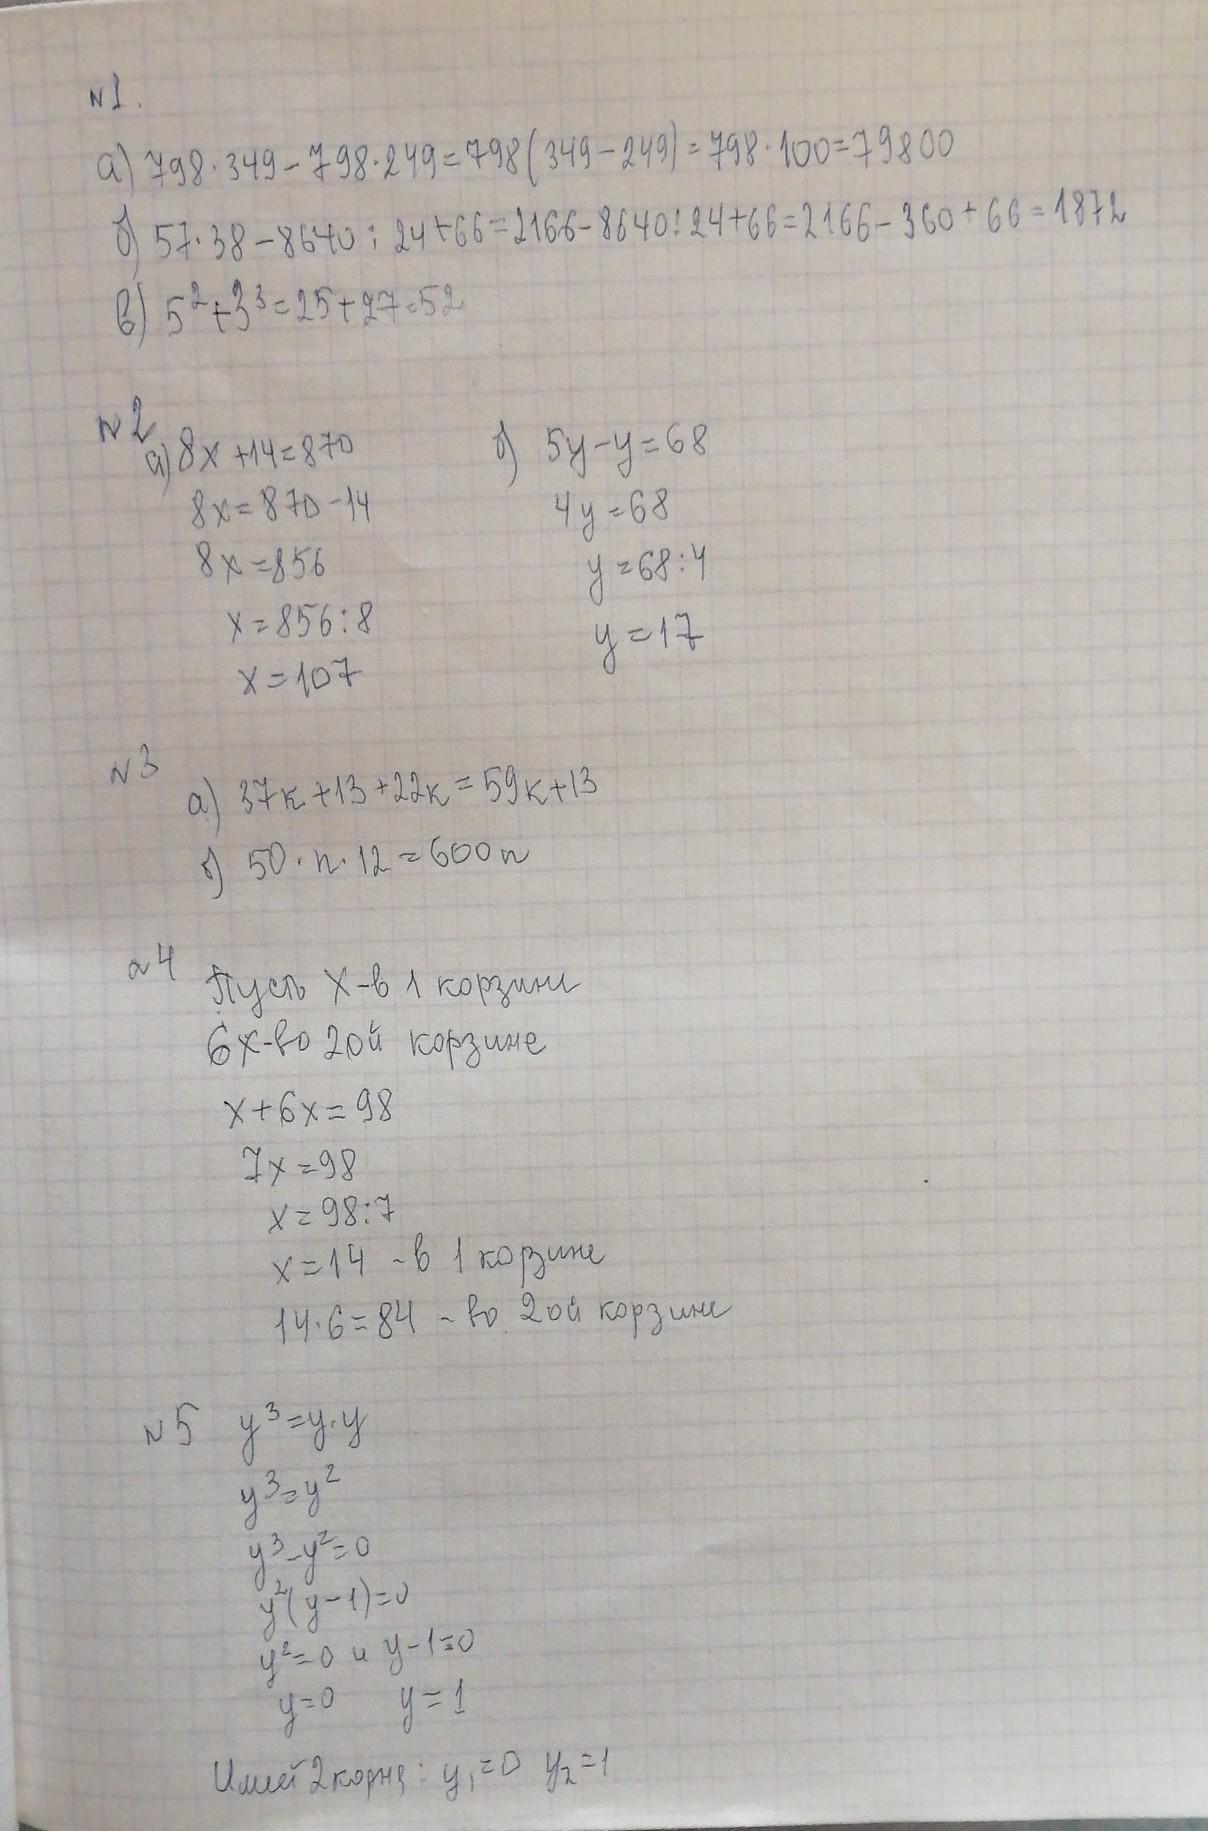 №1.
а) 798·349-798·249=798(349-249)=798·100=79800
б) 57·38-8640:24+66=2166-8640:24+66=2166-360+66=1872
в) 5²+3³=25+27=52
№2
а) 8x+14=870
8x=870-14
8x=856
x=856:8
x=107
б) 5y-y=68
4y=68
y=68:4
y=17
№3
а) 37к+13+22к=59к+13
б) 50·n·12=600n
№4
Пусть x-в 1 корзине
6x-во 2ой корзине
x+6x=98
7x=98
x=98:7
x=14 - в 1 корзине
14·6=84 - во 2ой корзине
№5 y³=y·y
y³=y²
y³-y²=0
y²(y-1)=0
y²=0 и y-1=0
y=0 y=1
Имеет 2 корня: y₁=0 y₂=1